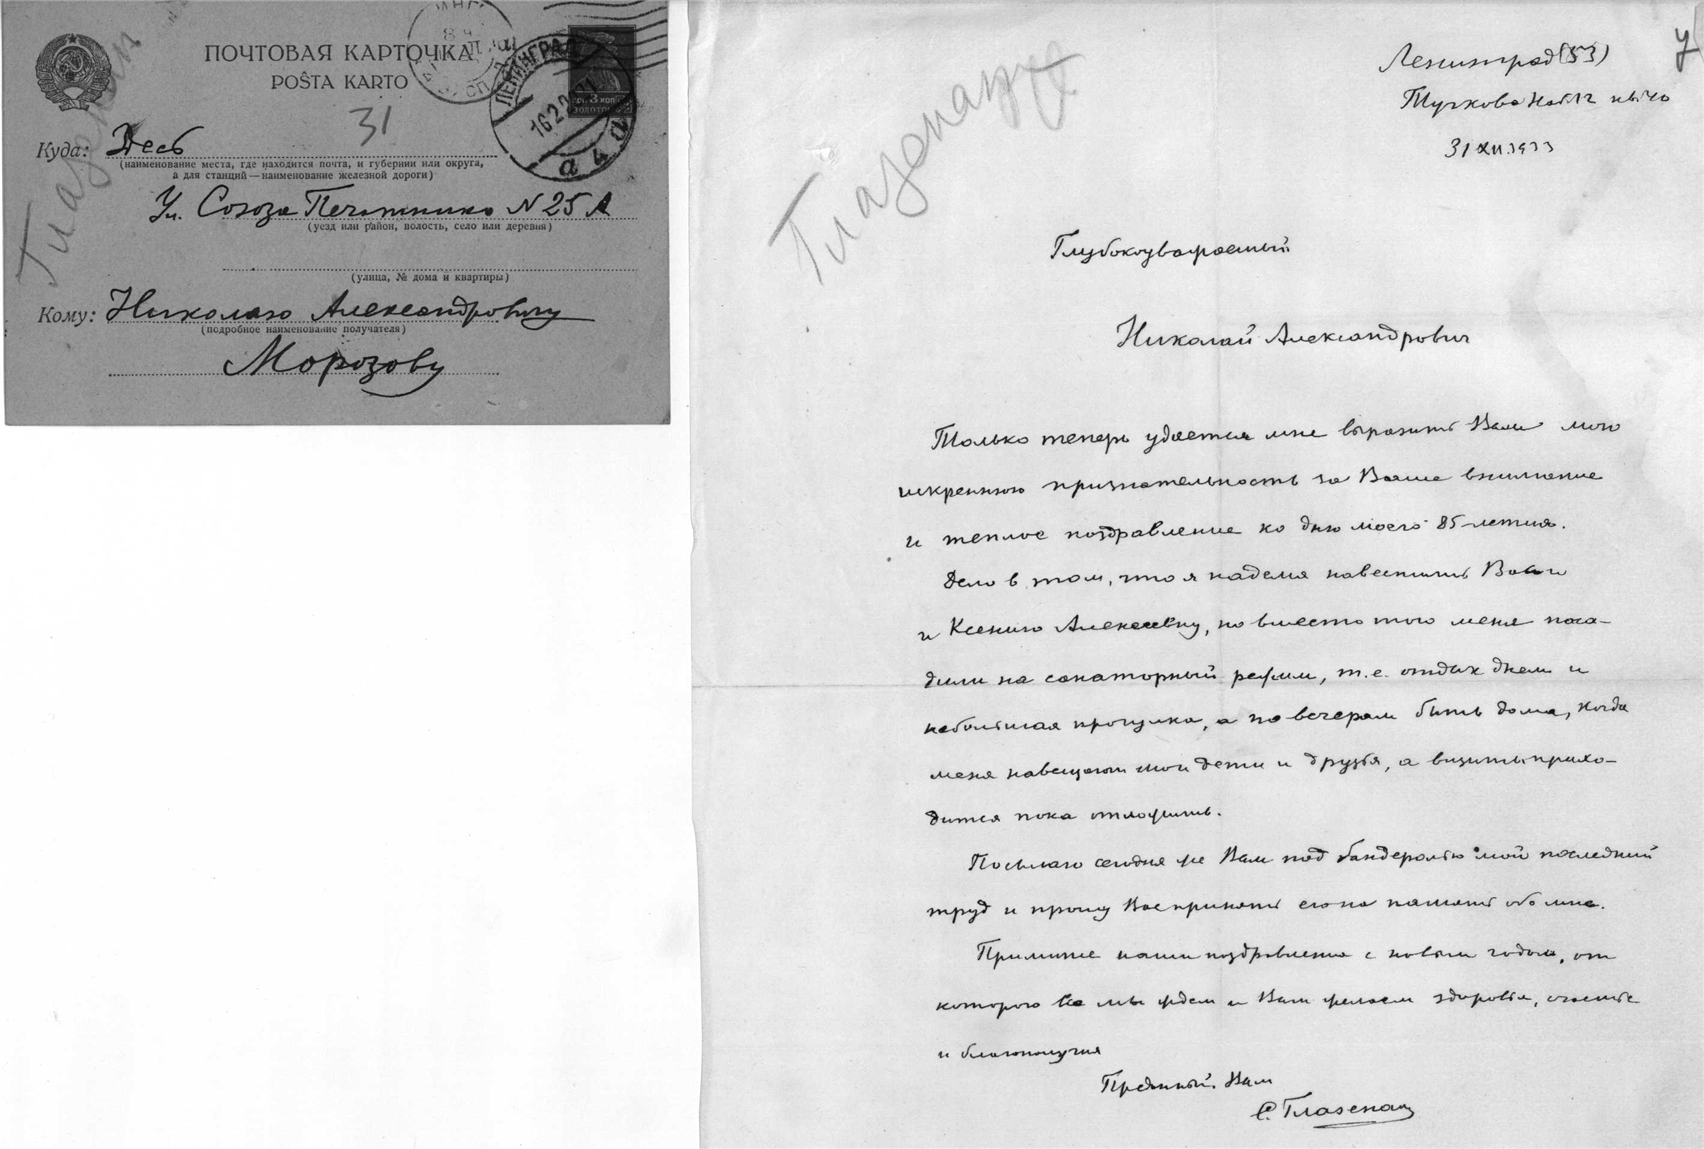 ПОЧТОВАЯ КАРТОЧКА
POŜTA KARTO
ЛЕНИНГРАД
31
Глазенап
Куда: Здесь
(наименование места, где находится почта, и губернии или округа,
а для станций—наименование железной дороги)
Ул. Союза Печатников N 25 А
(уезд или район, волость, село или деревня)
(улица, № дома и квартиры)
Кому: Николаю Александровичу
(подробное наименование получателя)
Морозову
Глазенапу
Ленинград (53)
Тучкова наб
31 XII 1933
Глубокоуважаемый
Николай Александрович
Только теперь удается мне выразить Вам мою
искреннюю признательность за Ваше внимание
и теплое поздравление ко дню моего 85-летия.
Дело в том, что я надеялся навестить Вас
и Ксению Алексеевну, но вместо того меня поса-
дили на санаторный режим, т.е. отдых днем и
небольшая прогулка, а по вечерам быть дома, когда
меня навещают мои дети и друзья, а визиты прихо-
дится пока отложить.
Посылаю сегодня же Вам под бандеролью мой последний
труд и прошу Вас принять его на память обо мне.
Примите наши поздравления с новым годом, от
которого все мы ждем и Вам желаем здоровья, счастья
и благополучия
Преданный Вам
С. Глазенап